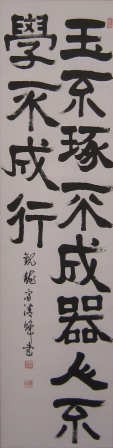 玉不琢不成器人不
學不成行